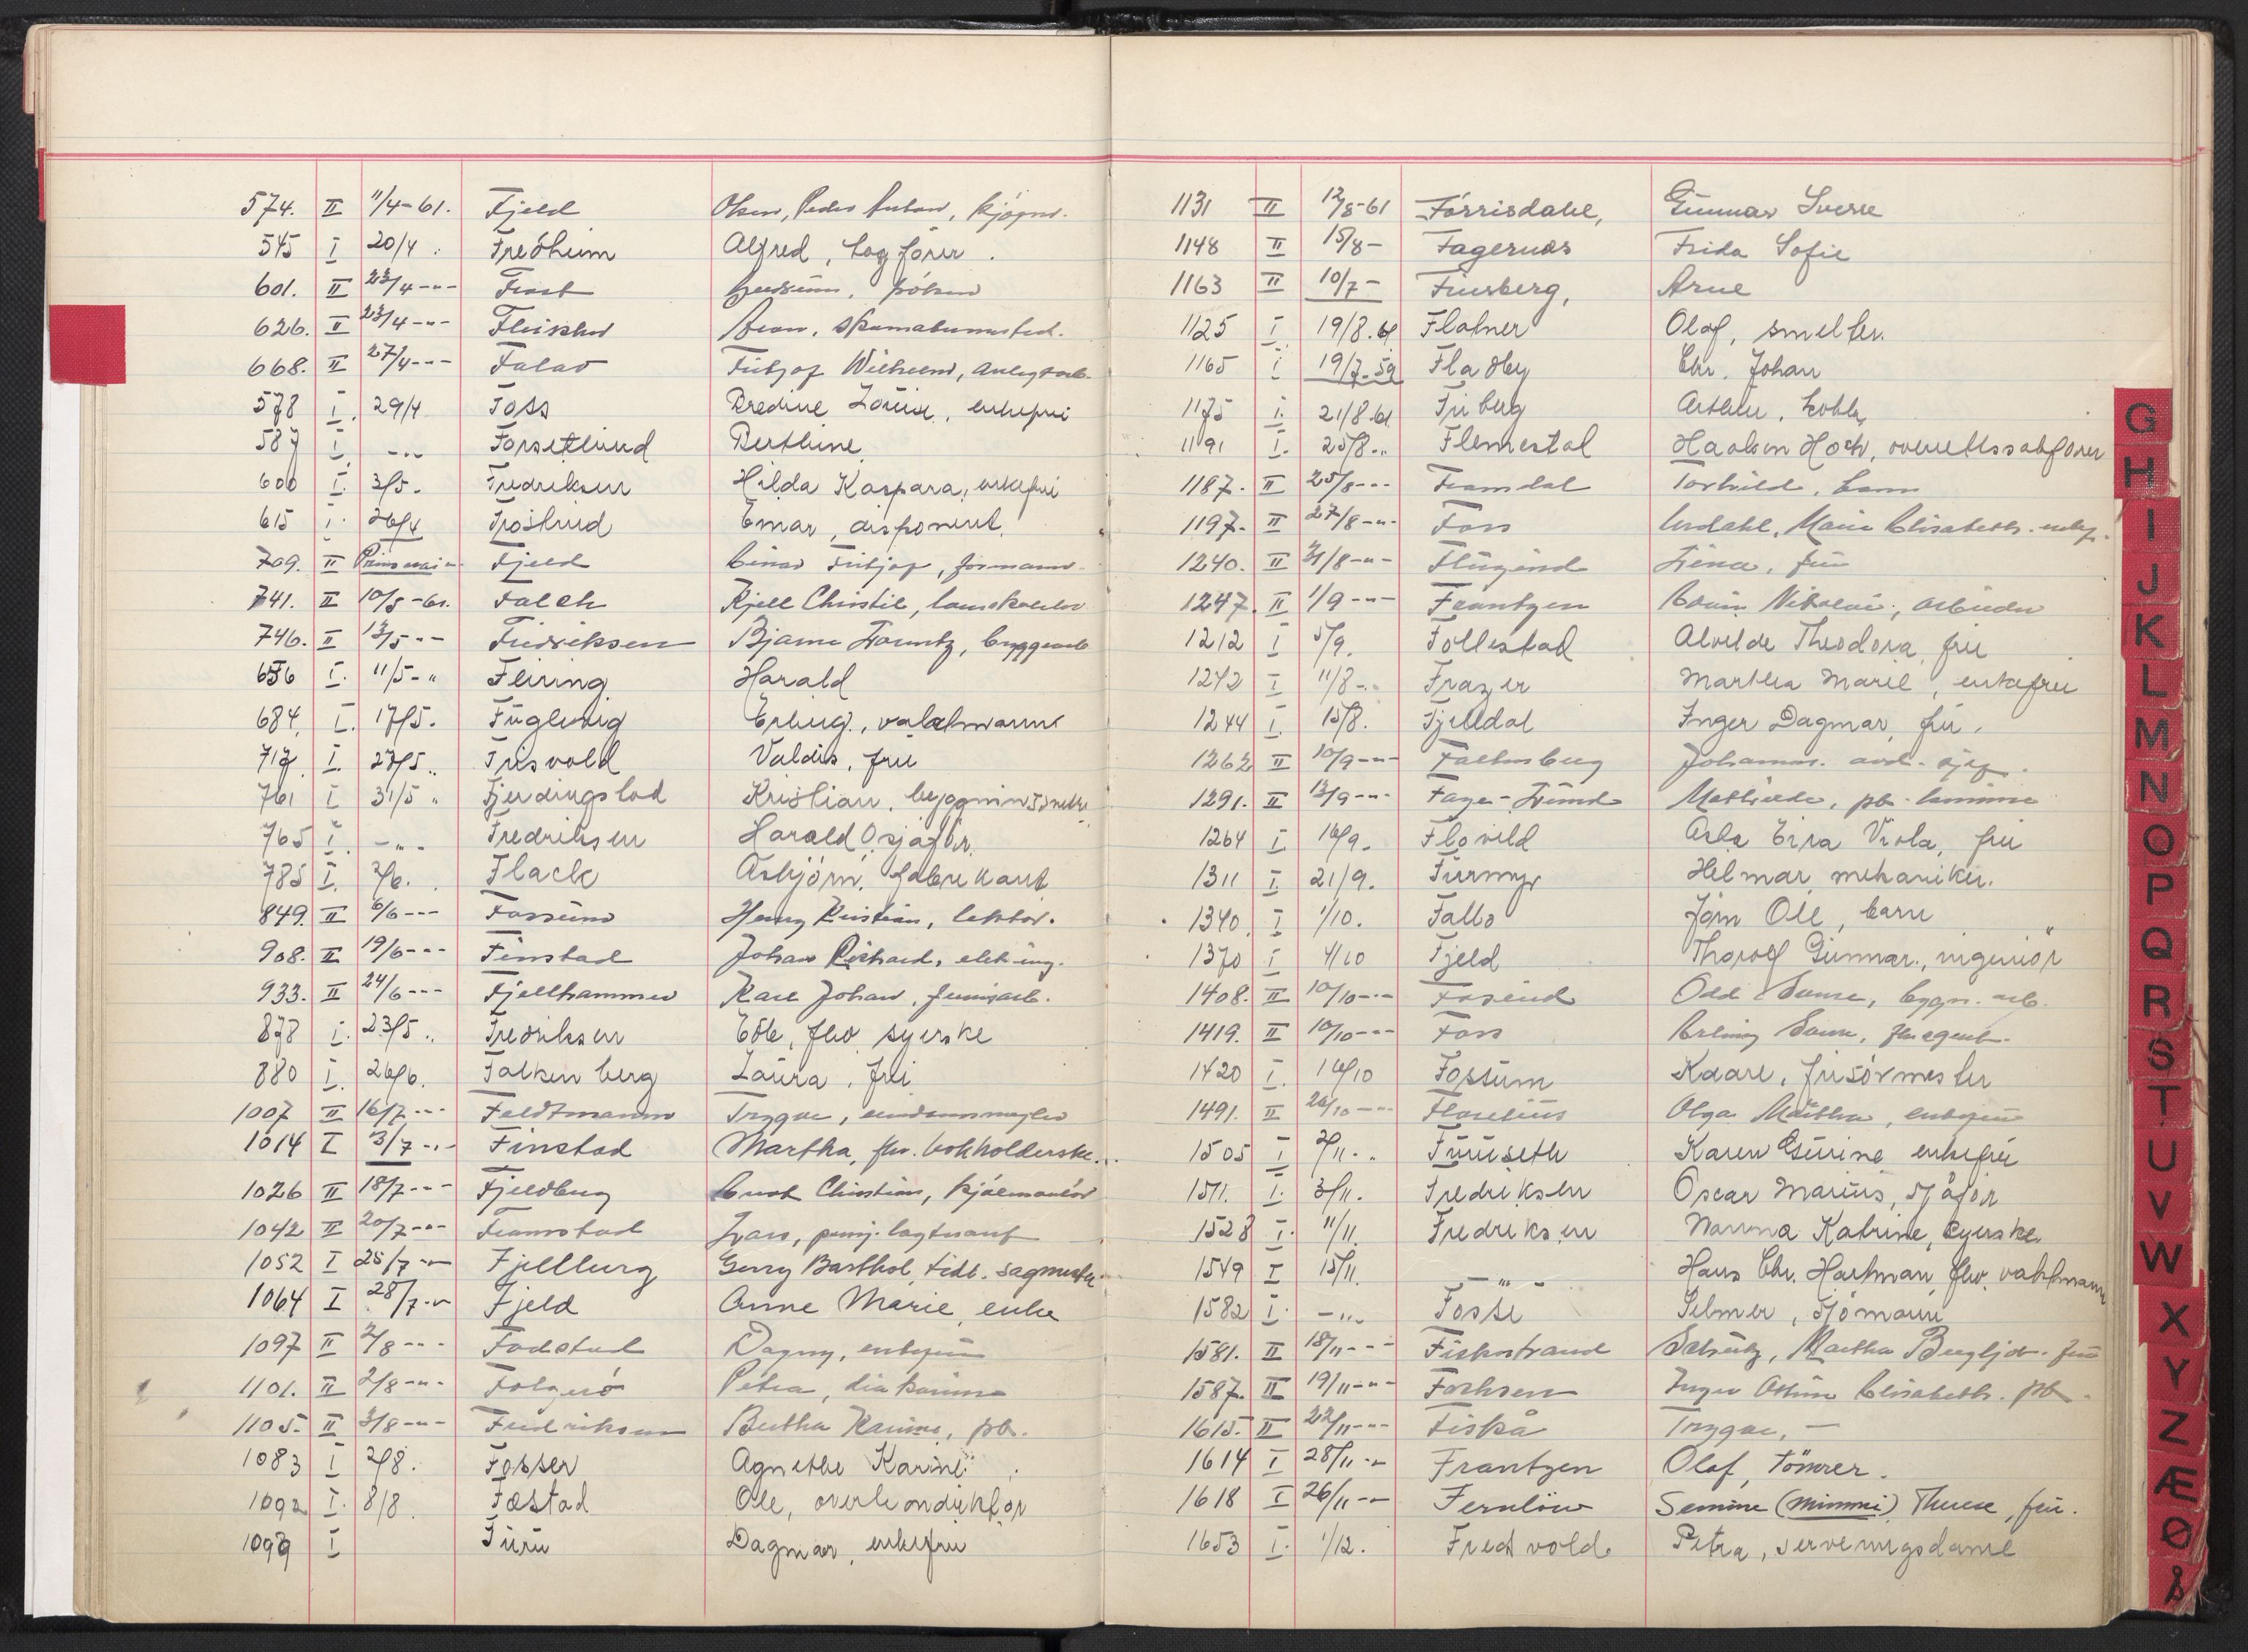 574. II 11/4-61. Fjeld Olsen, Peder Anton, kjøpm.
545 I 20/4 . Fredheim Alfred, togfører.
601. II 23/4 -"- Frost
626. II 23/4 -"- Fleischer
668. II 27/4 -"- Falao Fritjof Wilhelm, anlegsarb.
578 I. 29/4 Foss Bredine Louise, enkefru
587 I. -"- Forsetlund Berthine
600 I. 3/5. Fredriksen Hilda Kaspara, enkefru
615 I. 26/4 Frostrud Einar, disponent.
709. II Prims. mai " Fjeld Einar Fritjof, formann
741. II 10/5-61. Falch Kjell Christie,
746. II 13/5 -"- Fredriksen Bjarne Lorentz, byggearb.
656 I. 11/5 -" Feiring Harald
684. I. 17/5. Fuglevig Erling, vaktmann
717 I. 27/5 .. Frisvold Valdis, fru
761 I 31/5 " Fjerdingstad Kristian, bygningssnekker
765 I. -"- Fredriksen Harald O. sjåfør
785 I. 2/6. Flack Asbjørn, fabrikant
849. II 6/6 -"- Fossum Henry Kristian, lektor.
908. II 19/6 -"- Finstad Johan Richard, elek.ing.
933. II 24/6 -"- Fjellhammer Karl Johan, jernarb.
878 I. 23/5 .. Fredriksen Edle, fhv. syerske
880 I. 26/6. Falkenberg Laura, fru
1007 II 16/7 -"- Feldtmann Trygve, eiendomsmegler
1014 I 3/7 -"- Finstad Martha, fhv. bokholderske.
1026 II 18/7 -"- Fjeldberg Knut Christian,
1042 II 20/7 -"- Framstad Lars, pensj. lagtmann
1052 I 25/7 -"- Fjellberg Georg Barthol, tidl. sagmester
1064 I 28/7 -"- Fjeld Anne Marie, enke
1097 II 2/8 -"- Fodstad Dagny, enkefru
1101. II 2/8 -"- Folgerø Petra, diakonisse
1105. II 3/8 -"- Fredriksen Bertha Karine, pb.
1083 I 2/8. Fosser Agnethe Karine
1092 I. 8/8. Fæstad Ole, overkonduktør
1099 I Furu Dagmar, enkefru
1131 II 12/8-61 Førrisdahl, Gunnar Sverre
1148 II 15/8 - Fagernæs Frida Sofie
1163 II 10/7 - Furuberg, Arne
1125 I 19/8.61 Flatner Olaf, smelter.
1165 I 19/7.59 Fladby Chr. Johan
1175 I. 21/8.61 Friberg Arthur, kobbersl.
1191 I. 25/8 .. Flemestad Haakon Hoch, overrettssakfører
1187. II 25/8 -"- Framdal Torhild, barn
1197. II 27/8 -"- Foss Urdahl, Marie Elisabeth. enkef.
1240. II 31/8 -"- Flugind Lina, fru
1247. II 1/9 -"- Frantzen Edvin Nikolai, arbeider
1212 I 5/9. Follestad Alvilde Theodora, fru
1242 I 11/8 -.. Frazer Martha Marie, enkefru
1244 I. 15/8. Fjelldal Inger Dagmar, fru.
1262 II 10/9 -"- Falkenberg Johannes. avd. sjef.
1291. II 13/9 -"- Fage-Lund Mathilde, pb. lærerinne
1264 I 16/9. Flovild Asla Eira Viola, fru
1311 I 21/9. Furmyr Hilmar mekaniker.
1340. I 1/10. Fallo Jørn Ole, barn
1370 I 4/10 Fjeld Thorolf Gunnar., ingeniør
1408. II 10/10 -"- Fosend Odd Sverre, bygn. arb.
1419. II 10/10 -"- Foss Erling Sverre, fhv. agent.
1420 I. 16/10 Fossum Kaare, frisørmester
1491. II 26/10 -"- Floselius Olga Martha, enkefru
1505 I 2/11 .. Furuseth Karen Gurine enkefru
1511. I. 3/11. Fredriksen Oscar Marius, sjåfør
1528 I. 11/11. Fredriksen Nanna Katrine, syerske.
1549 I 15/11. -"- Hans Chr. Hartman, fhv. vaktmann
1582 I. -"- Fosse Selmer, sjømann
1581. II 18/11 -"- Fiskerstrand Schultz, Martha Bergljot. fru
1587. II 19/11 -"- Forhsen Inger Othine Elisabeth. pb.
1615. II 22/11 -"- Fiskå Trygve, -
1614 I 28/11 -"- Frantzen Olaf, tømrer.
1618 I 26/11 -"- Fernløw Semine (Mimmi) Therese, fru.
1653 I. 1/12. Fredvold. Petra, serveringsdame
G
H
I
J
K
L
M
N
O
P
Q
R
S
T
U
V
W
X
Y
Z
Æ
Ø
Å